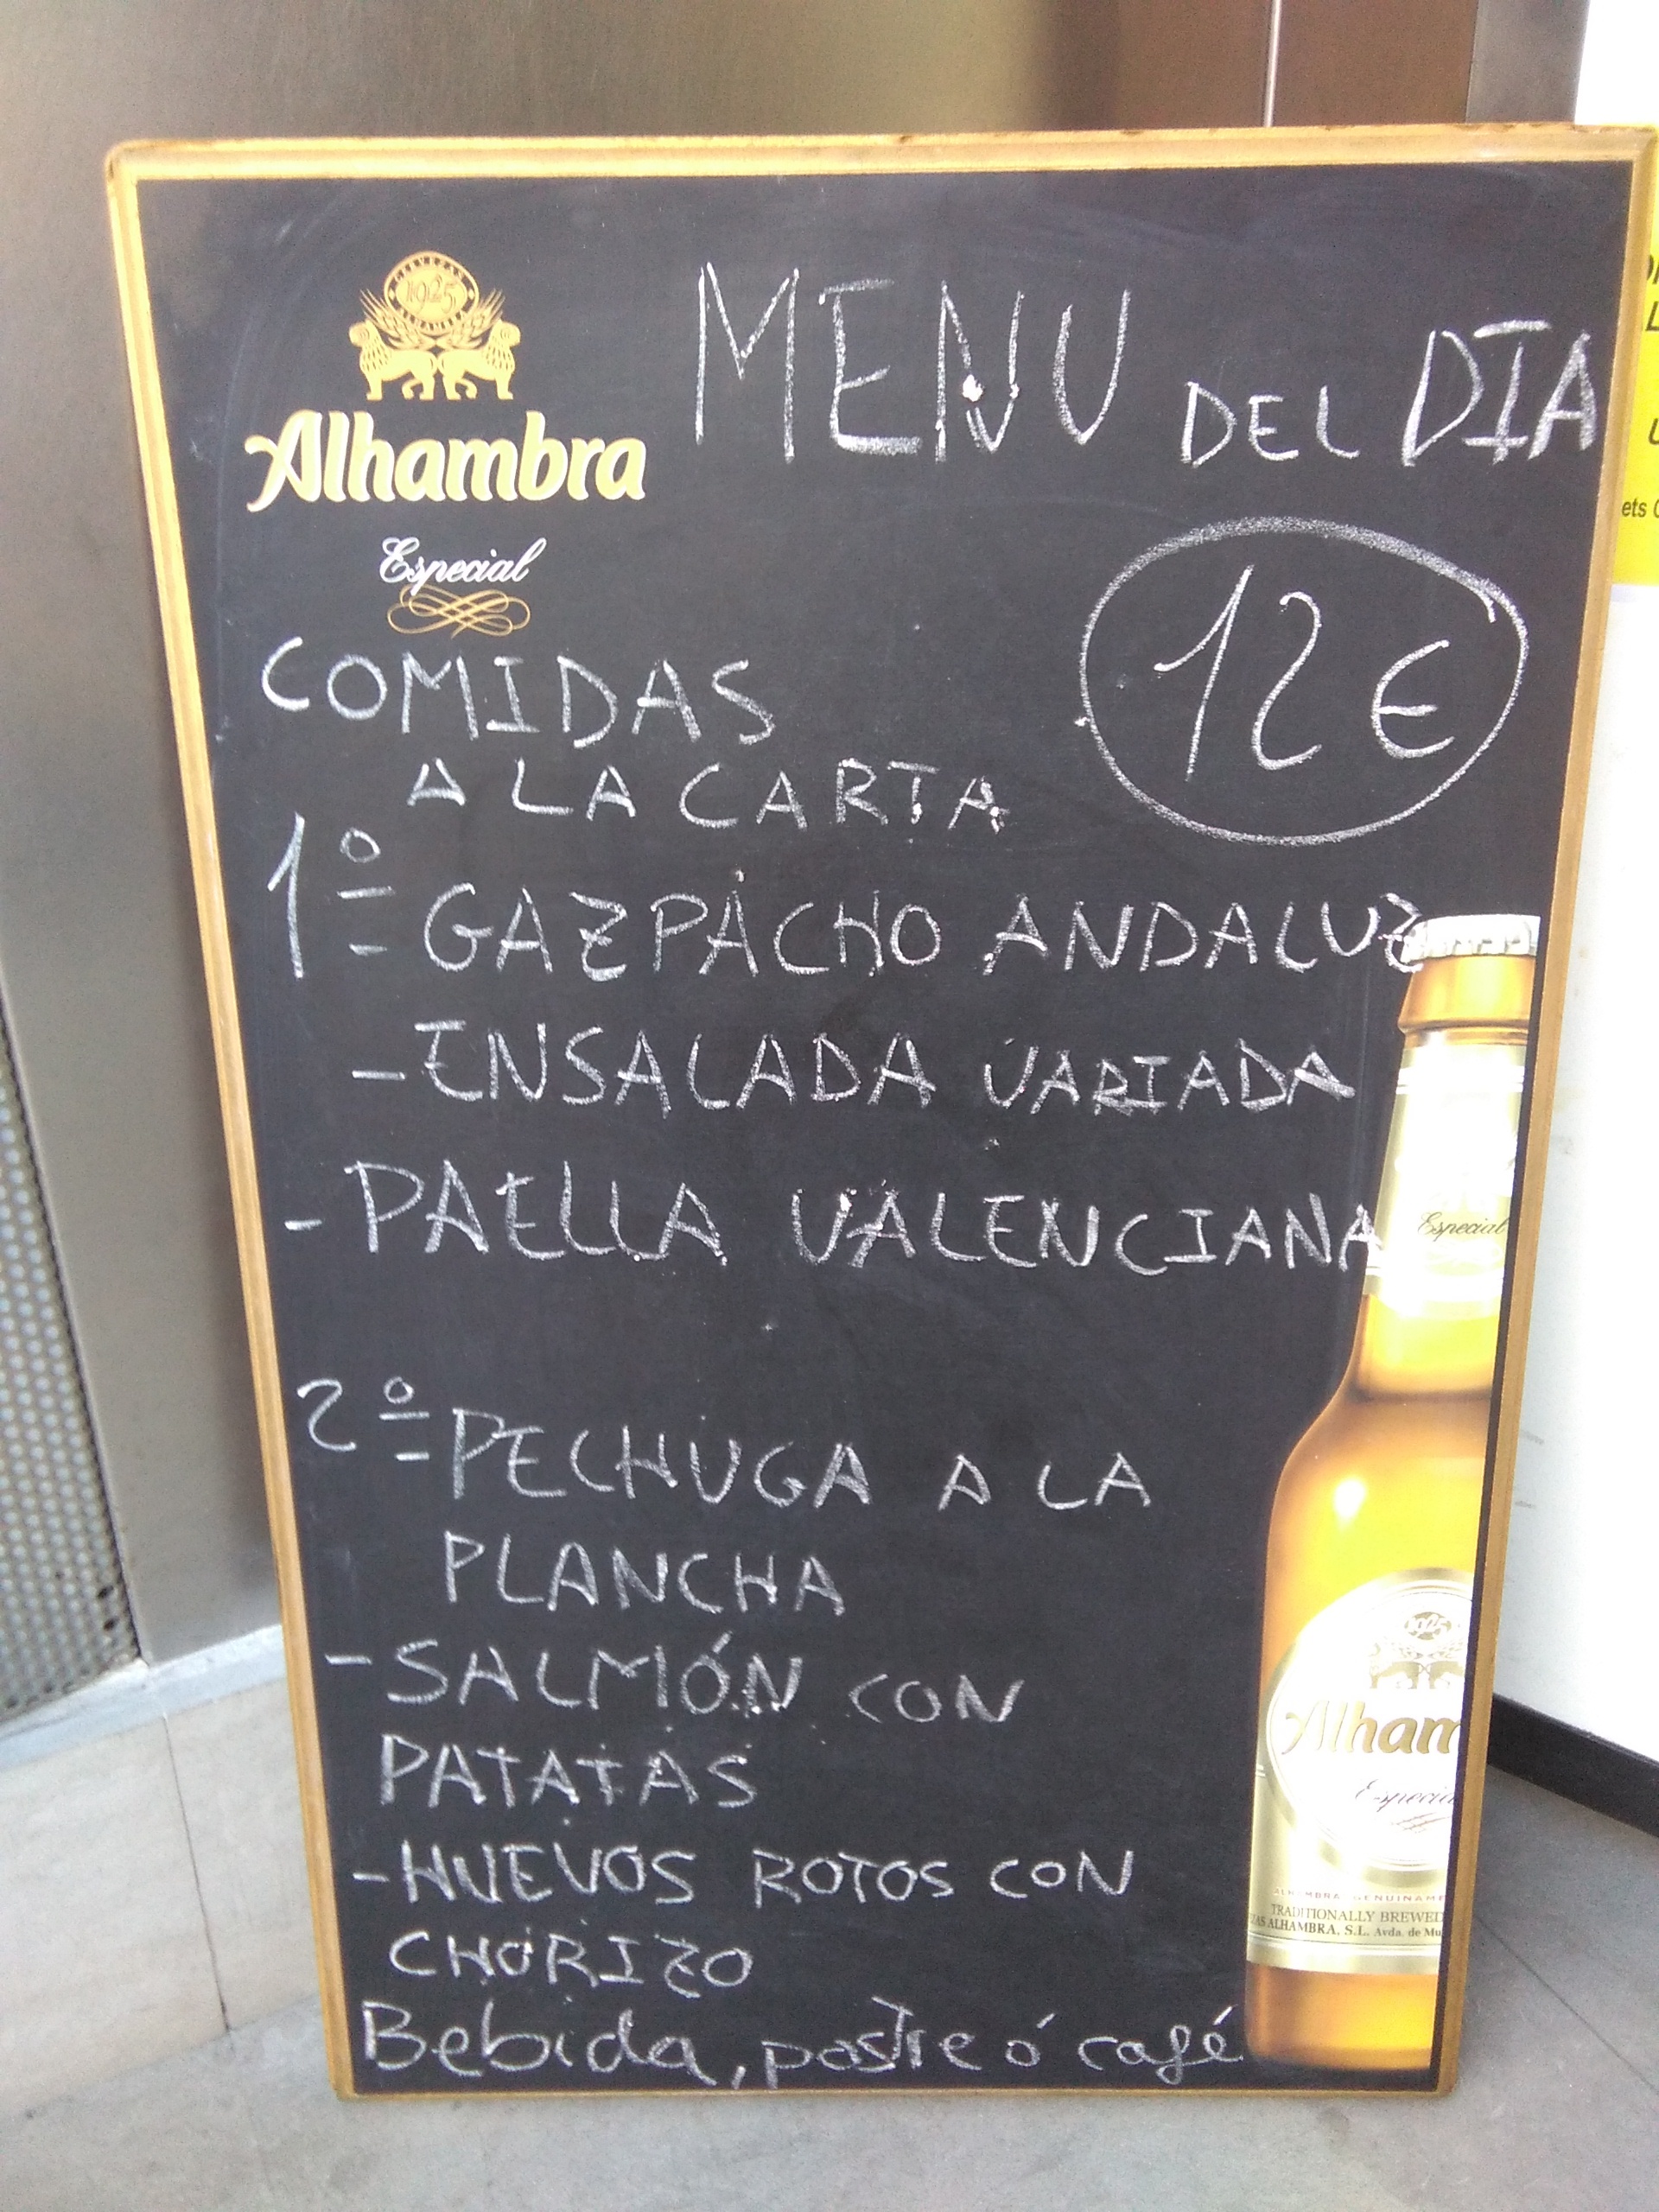 CERVEZAS
1925
ALHAMBRA
Alhambra
Especial
MENU DEL DIA
12€
COMIDAS
A LA CARTA
1º- GAZPACHO ANDALUZ
- ENSALADA VARIADA
- PAELLA VALENCIANA
2º- PECHUGA A LA
PLANCHA
- SALMÓN CON
PATATAS
- HUEVOS ROTOS CON
CHORIZO
Bebida, postre ó café
Especial
1925
Alham
Especia
ALHAMBRA GENUINAME
TRADITIONALLY BREWED
ZAS ALHAMBRA, S.L. Avda. de Mu
ets